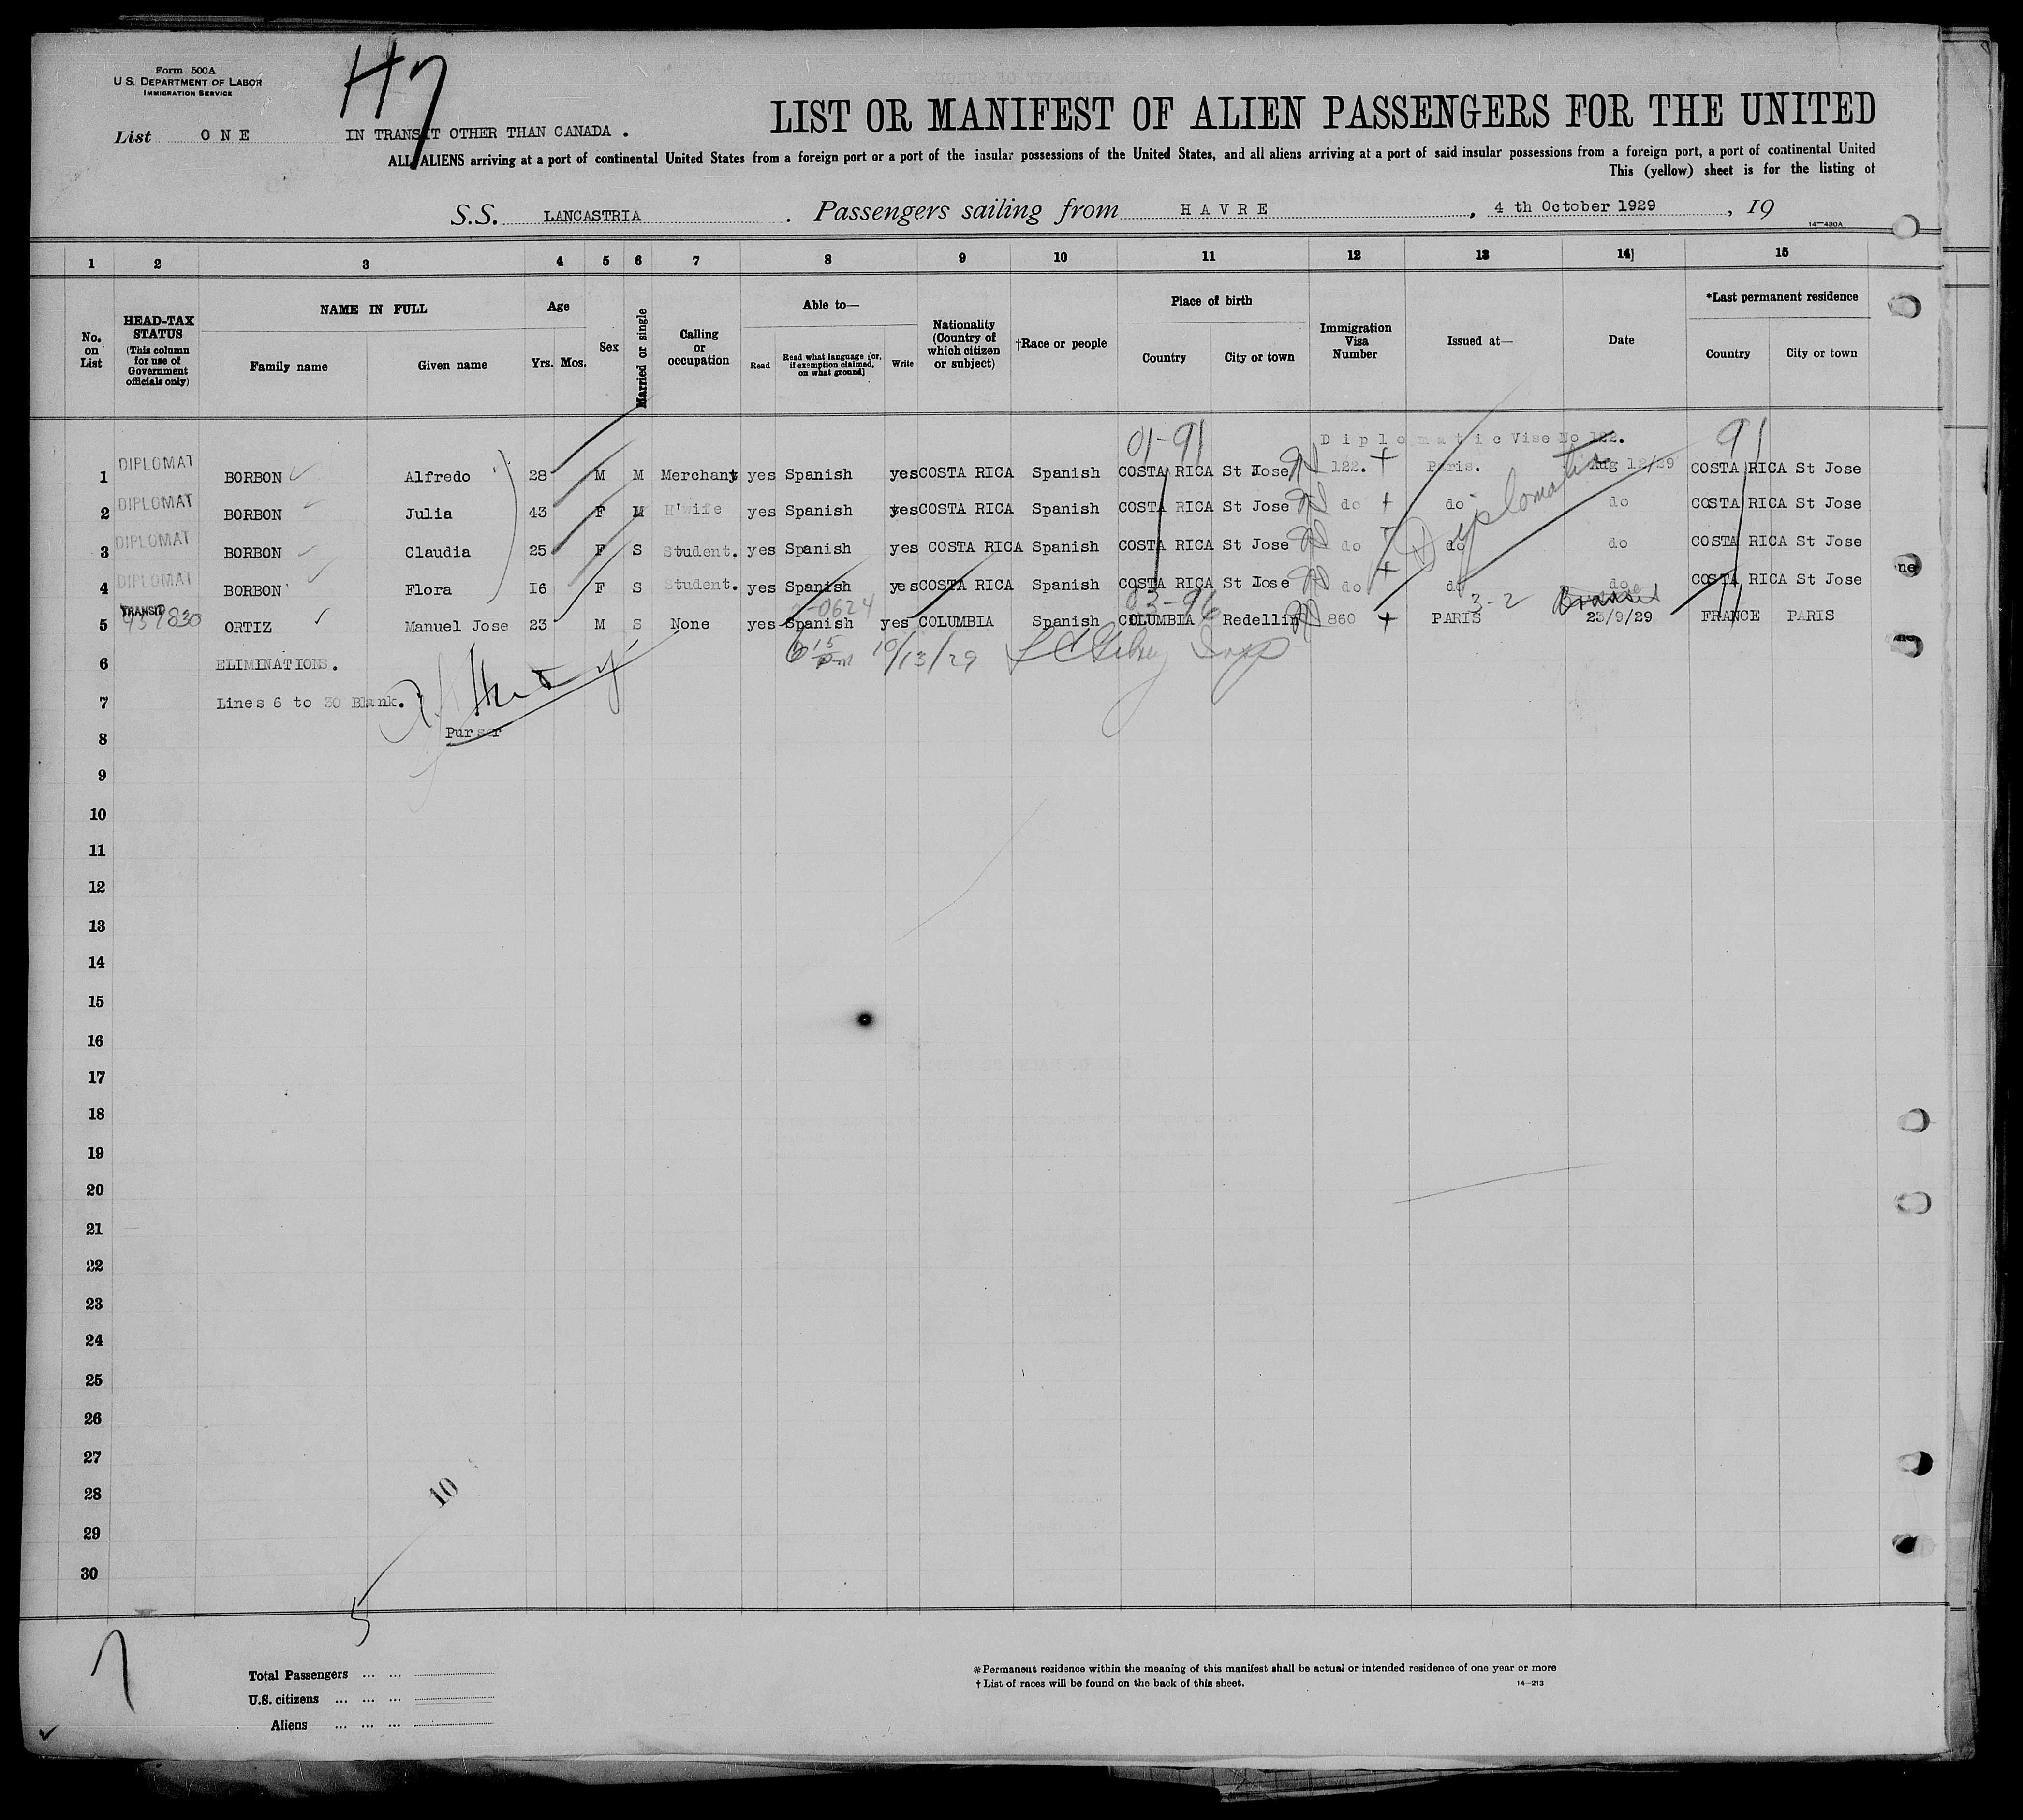 Form 500A
U. S. DEPARTMENT OF LABOR
IMMIGRATION SERVICE
H7
List ONE IN TRANSIT OTHER THAN CANADA .
LIST OR MANIFEST OF ALIEN PASSENGERS FOR THE UNITED
ALL ALIENS arriving at a port of continental United States from a foreign port or a port of the insular possessions of the United States, and all aliens arriving at a port of said insular possessions from a foreign port, a port of continental United
This (yellow) sheet is for the listing of
S.S. LANCASTRIA . Passengers sailing from HAVRE , 4 th October 1929 , 19
14—430A
1 2 3 4 5 6 7 8 9 10 11 12 13 14 15
No. on List
HEAD-TAX STATUS (This column for use of Government officials only)
NAME IN FULL
Family name Given name
Age
Yrs. Mos.
Sex
Married or single
Calling or occupation
Able to—
Read Read what language [or, if exemption claimed, on what ground] Write
Nationality (Country of which citizen or subject)
†Race or people
Place of birth
Country City or town
Immigration Visa Number
Issued at—
Date
*Last permanent residence
Country City or town
01-91 Diplomatic Vise No 122. 91
1 DIPLOMAT BORBON Alfredo 28 M M Merchant yes Spanish yes COSTA RICA Spanish COSTA RICA St Jose 122. Paris. Aug 12/29 COSTA RICA St Jose
2 DIPLOMAT BORBON Julia 43 F M H'wife yes Spanish yes COSTA RICA Spanish COSTA RICA St Jose do do do COSTA RICA St Jose
3 DIPLOMAT BORBON Claudia 25 F S Student. yes Spanish yes COSTA RICA Spanish COSTA RICA St Jose do do do COSTA RICA St Jose
4 DIPLOMAT BORBON Flora 16 F S Student. yes Spanish yes COSTA RICA Spanish COSTA RICA St Jose do do do COSTA RICA St Jose
Diplomatic
03-96 3-2 Transit
5 TRANSIT ORTIZ Manuel Jose 23 M S None yes Spanish yes COLUMBIA Spanish COLUMBIA Redellin 860 PARIS 23/9/29 FRANCE PARIS
6 ELIMINATIONS. 6 15 pm 10/13/29
7 Lines 6 to 30 Blank.
8 Purser
9
10
11
12
13
14
15
16
17
18
19
20
21
22
23
24
25
26
27
28
29
30
10
5
7
Total Passengers ... ...
U.S. citizens ... ... ...
Aliens ... ... ...
*Permanent residence within the meaning of this manifest shall be actual or intended residence of one year or more
†List of races will be found on the back of this sheet.
14—213